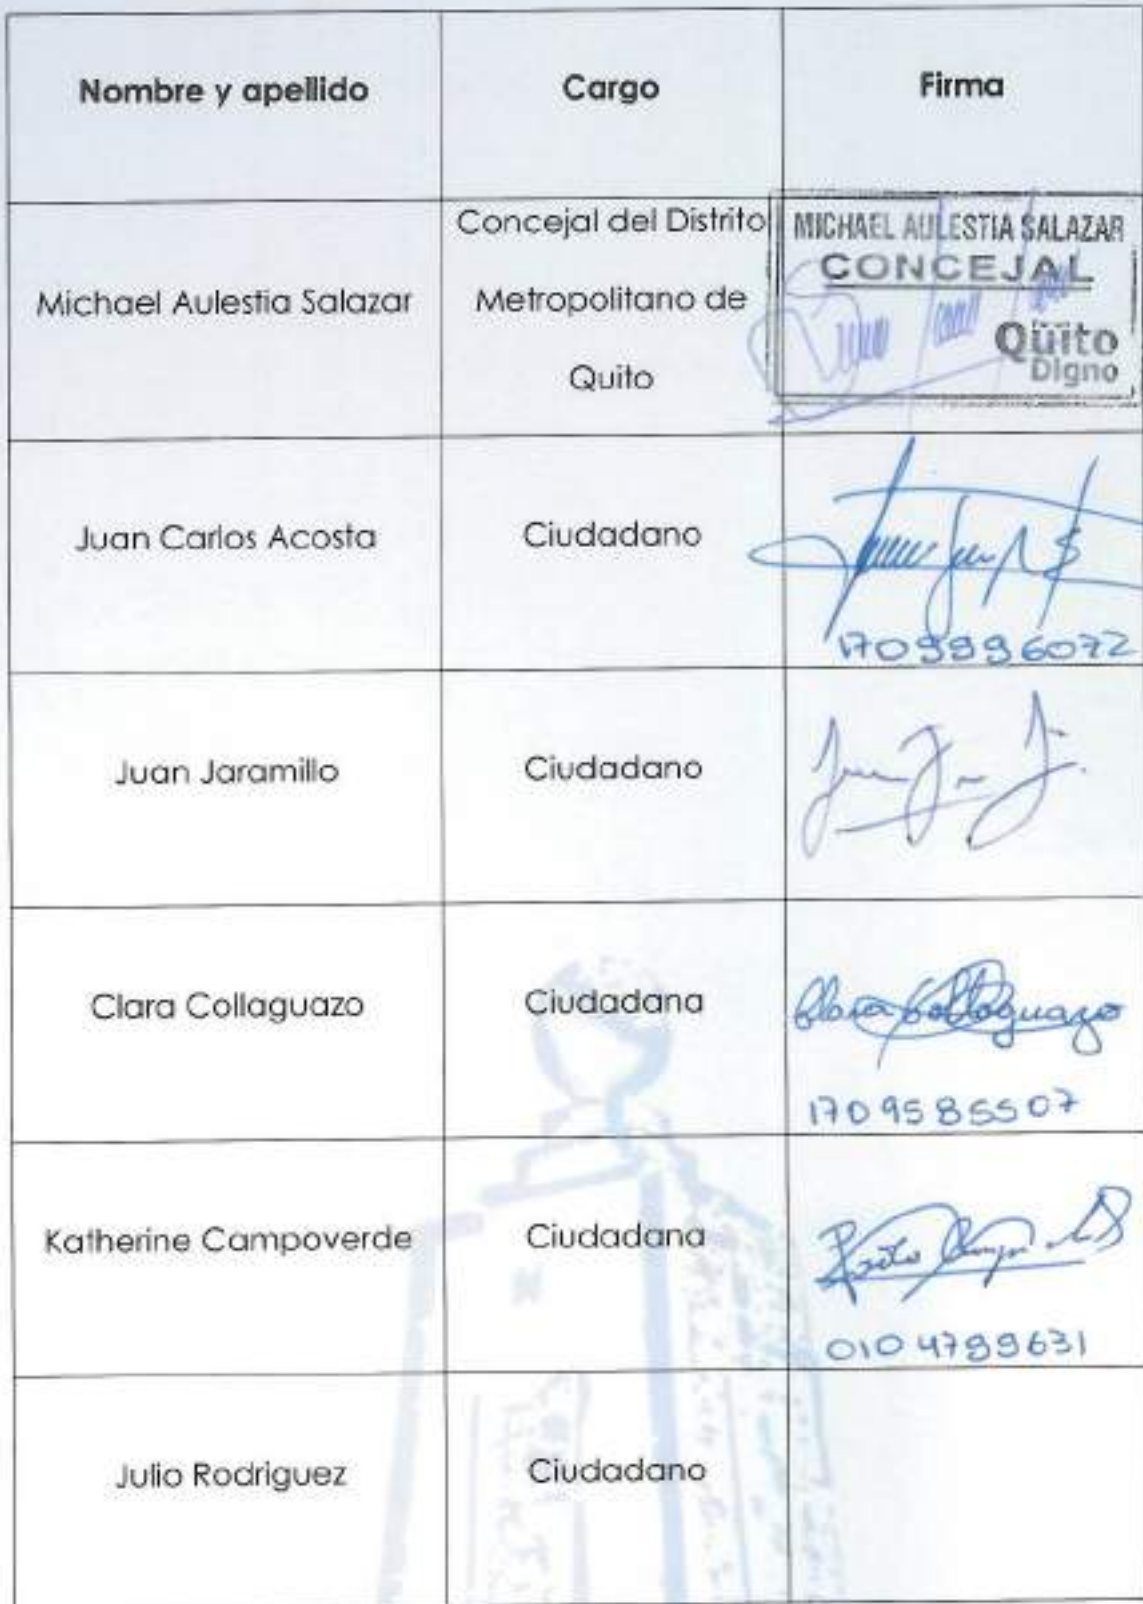 Nombre y apellido
Cargo
Firma
Michael Aulestia Salazar
Concejal del Distrito
Metropolitano de
Quito
MICHAEL AULESTIA SALAZAR
CONCEJAL
Quito
Digno
Juan Carlos Acosta
Ciudadano
1709996072
Juan Jaramillo
Ciudadano
Clara Collaguazo
Ciudadana
Clara Collaguazo
1709585507
Katherine Campoverde
Ciudadana
0104799631
Julio Rodriguez
Ciudadano